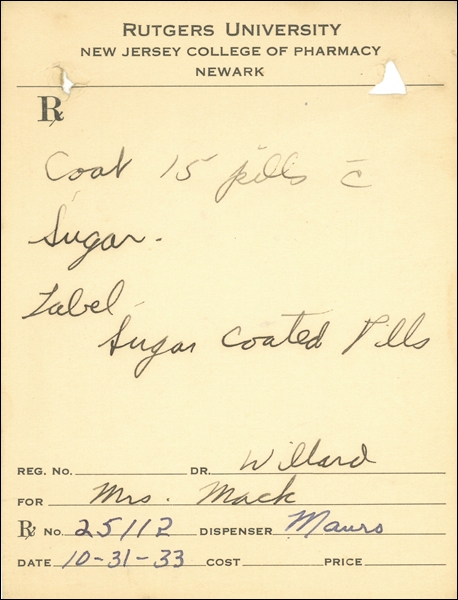 RUTGERS UNIVERSITY
NEW JERSEY COLLEGE OF PHARMACY
NEWARK
℞
Coat 15 pills c̄
Sugar.
Label
Sugar Coated Pills
REG. NO. DR. Willard
FOR Mrs. Mack
℞ NO. 25112 DISPENSER Mauro
DATE 10-31-33 COST PRICE